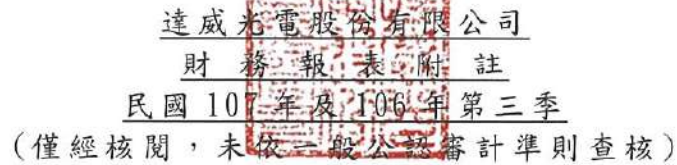 達威光電股份有限公司
財務報表附註
民國 107 年及 106 年第三季
(僅經核閱,未依一般公認審計準則查核)